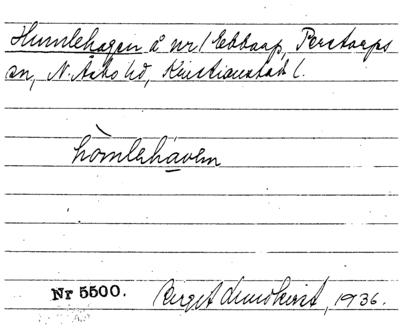 Humlehagen å nr 1 Ebbarp, Perstorps
sn, N. Åsbo hd, Kristianstads l.
hòmlehávem
Nr 5500. Birgit Lundkvist, 1936.